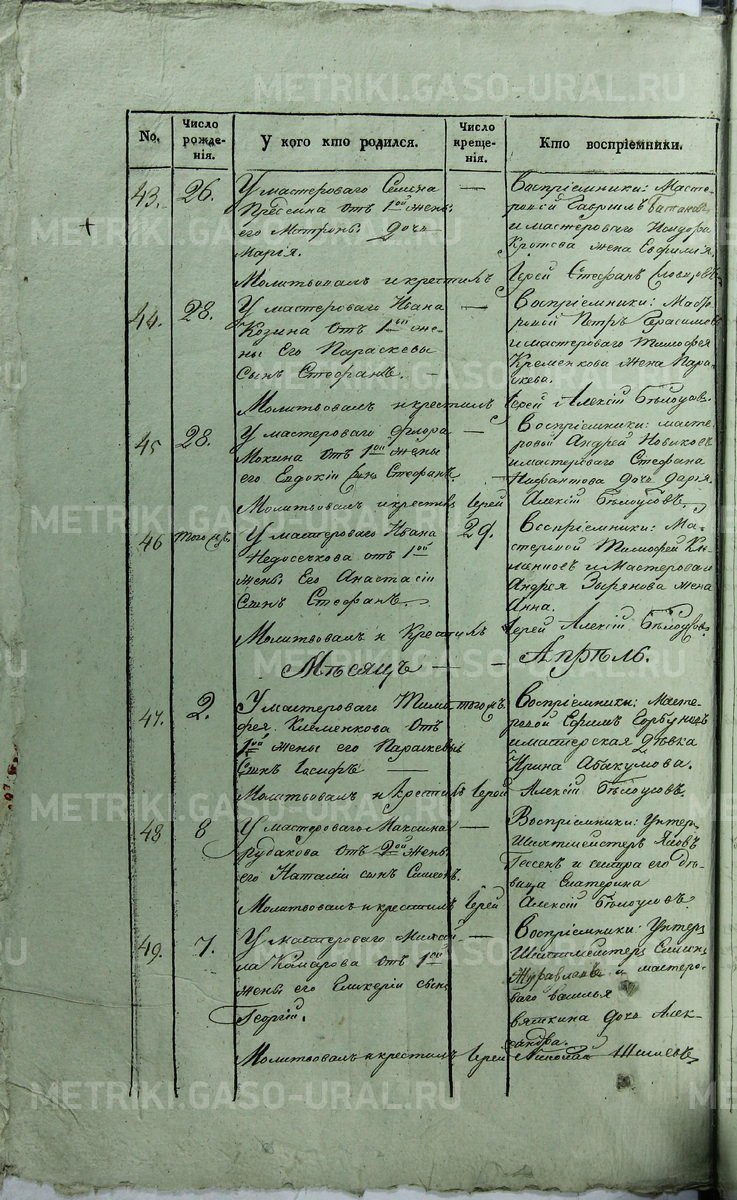 METRIKI.GASO-URAL.RU
No.
Число рожде-нія.
У кого кто родился.
Число креще-нія.
Кто воспріемники.
43.
26.
У мастероваго Семена
отъ 1ой жены
его Матроны дочь
Марія.
—
Воспріемники: Масте-
ровой Гавріилъ
и мастероваго Исидора
Кротова жена Евфимія.
Молитвовалъ и крестилъ Іерей Стефанъ Словцовъ.
44.
28.
У мастероваго Ивана
Козина отъ 1ой же-
ны Его Параскевы
Сынъ Стефанъ. —
—
Воспріемники: Масте-
ровой Петръ Герасимовъ
и мастероваго Тимофея
Клеменкова жена Пара-
скева.
Молитвовалъ и крестилъ Іерей Алексій Бѣлоусовъ.
45
28.
У мастероваго Флора
Мохина отъ 1ой жены
его Евдокіи Сынъ Стефанъ.
—
Воспріемники: масте-
ровой Андрей Новиковъ
и мастероваго Стефана
дочь Дарья.
Молитвовалъ и крестилъ Іерей Алексій Бѣлоусовъ.
46
У мастероваго Ивана
Недосечкова отъ 1ой
жены Его Анастасіи
Сынъ Стефанъ.
29.
Воспріемники: Ма-
стеровой Тимофей
и Мастероваго
Андрея Зырянова жена
Анна.
Молитвовалъ и Крестилъ Іерей Алексій Бѣлоусовъ.
Мѣсяцъ — — Апрѣль.
47.
2.
У мастероваго Тимо-
фея Клеменкова отъ
1ой жены его Параскевы
Сынъ Іосифъ —
тогожъ.
Воспріемники: Масте-
ровой Ефимъ Горбуновъ
и мастерская дѣвка
Ирина Абакумова.
Молитвовалъ и Крестилъ Іерей Алексій Бѣлоусовъ.
48
8
У мастероваго Максима
Рудакова отъ 2ой жены
его Наталіи сынъ Симеонъ.
—
Воспріемники: Унтеръ
Шихтмейстеръ Яковъ
Гессен и сестра его дѣ-
вица Екатерина
Молитвовалъ и крестилъ Іерей Алексій Бѣлоусовъ
49.
7.
У мастероваго Михай-
ла Комарова отъ 1ой
жены его Гликеріи сынъ
Георгій.
—
Воспріемники: Унтеръ
Шихтмейстеръ
Журавлевъ и мастеро-
ваго Василья
Вяткина дочь Алек-
сандра.
Молитвовалъ и крестилъ Іерей Николай